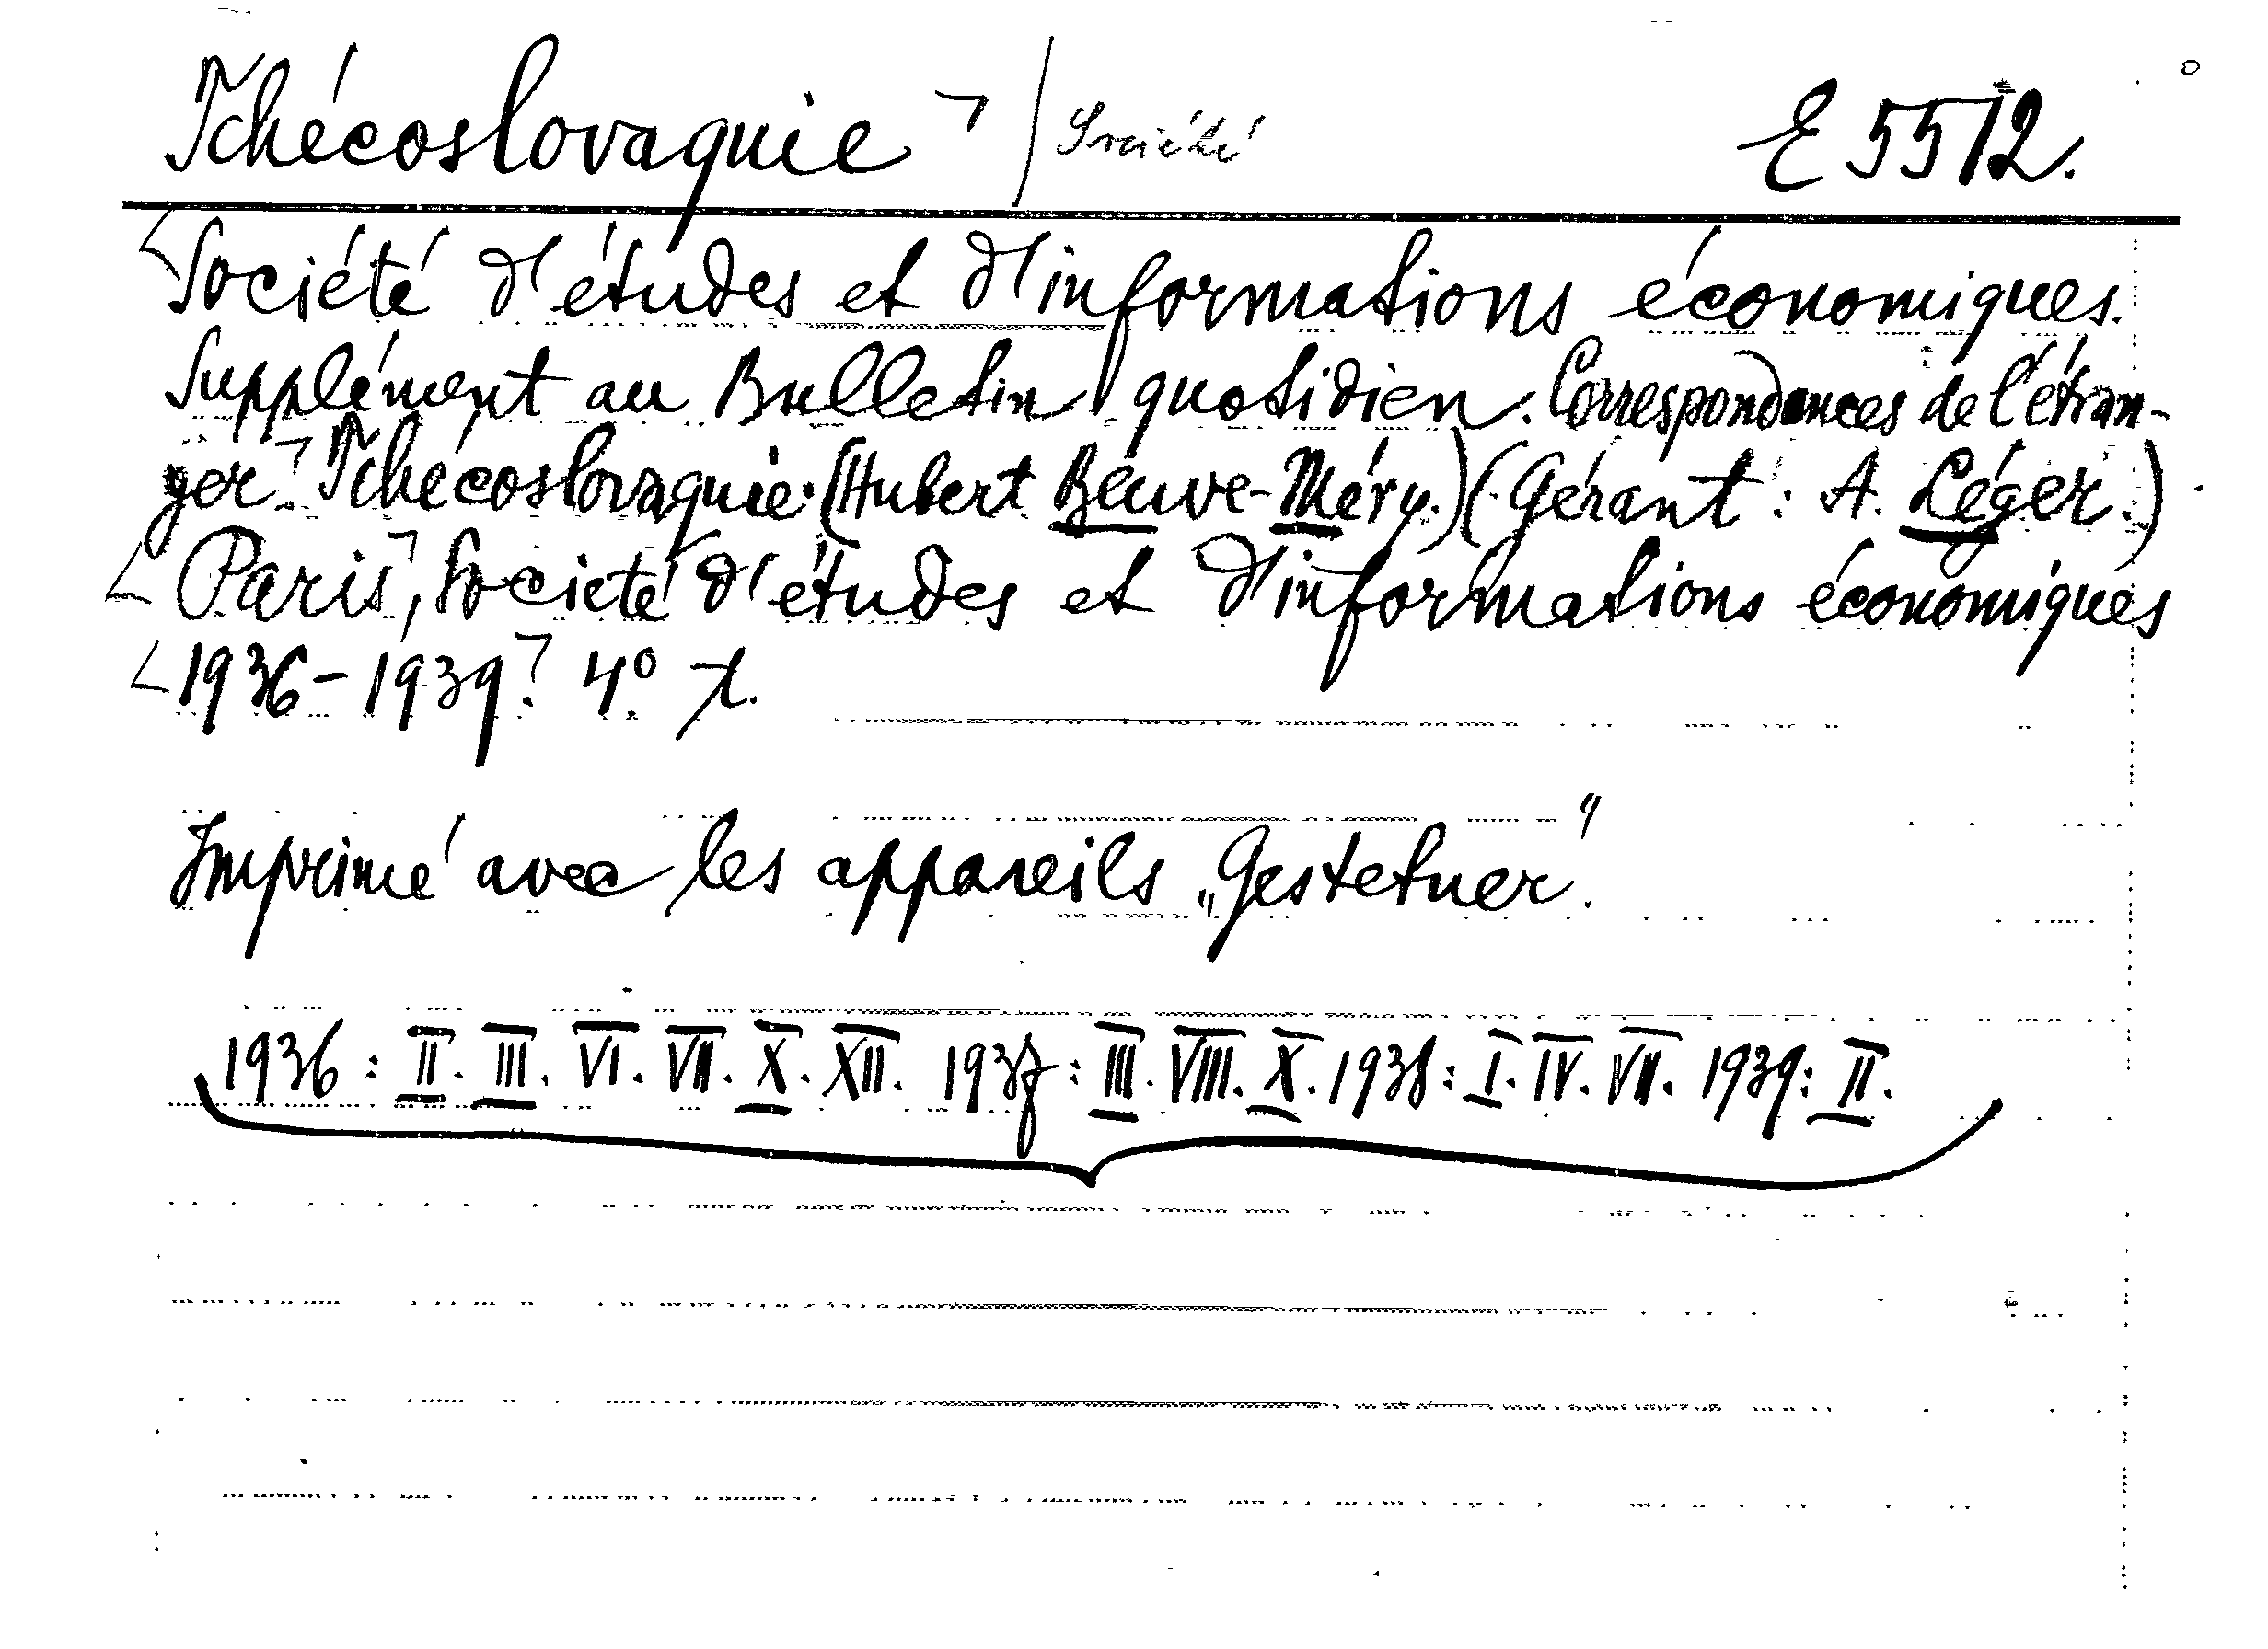 Tchécoslovaquie / Société E 5512.
Société d'études et d'informations économiques.
Supplément au Bulletin quotidien. Correspondances de l'étran-
ger. Tchécoslovaquie. (Hubert Beuve-Méry.) (Gérant: A. Léger.)
Paris, Société d'études et d'informations économiques
1936-1939. 4°
Imprimé avec les appareils „Gestetner".
1936: II. III. VI. VII. X. XII. 1937: III. VIII. X. 1938: I. IV. VII. 1939: II.